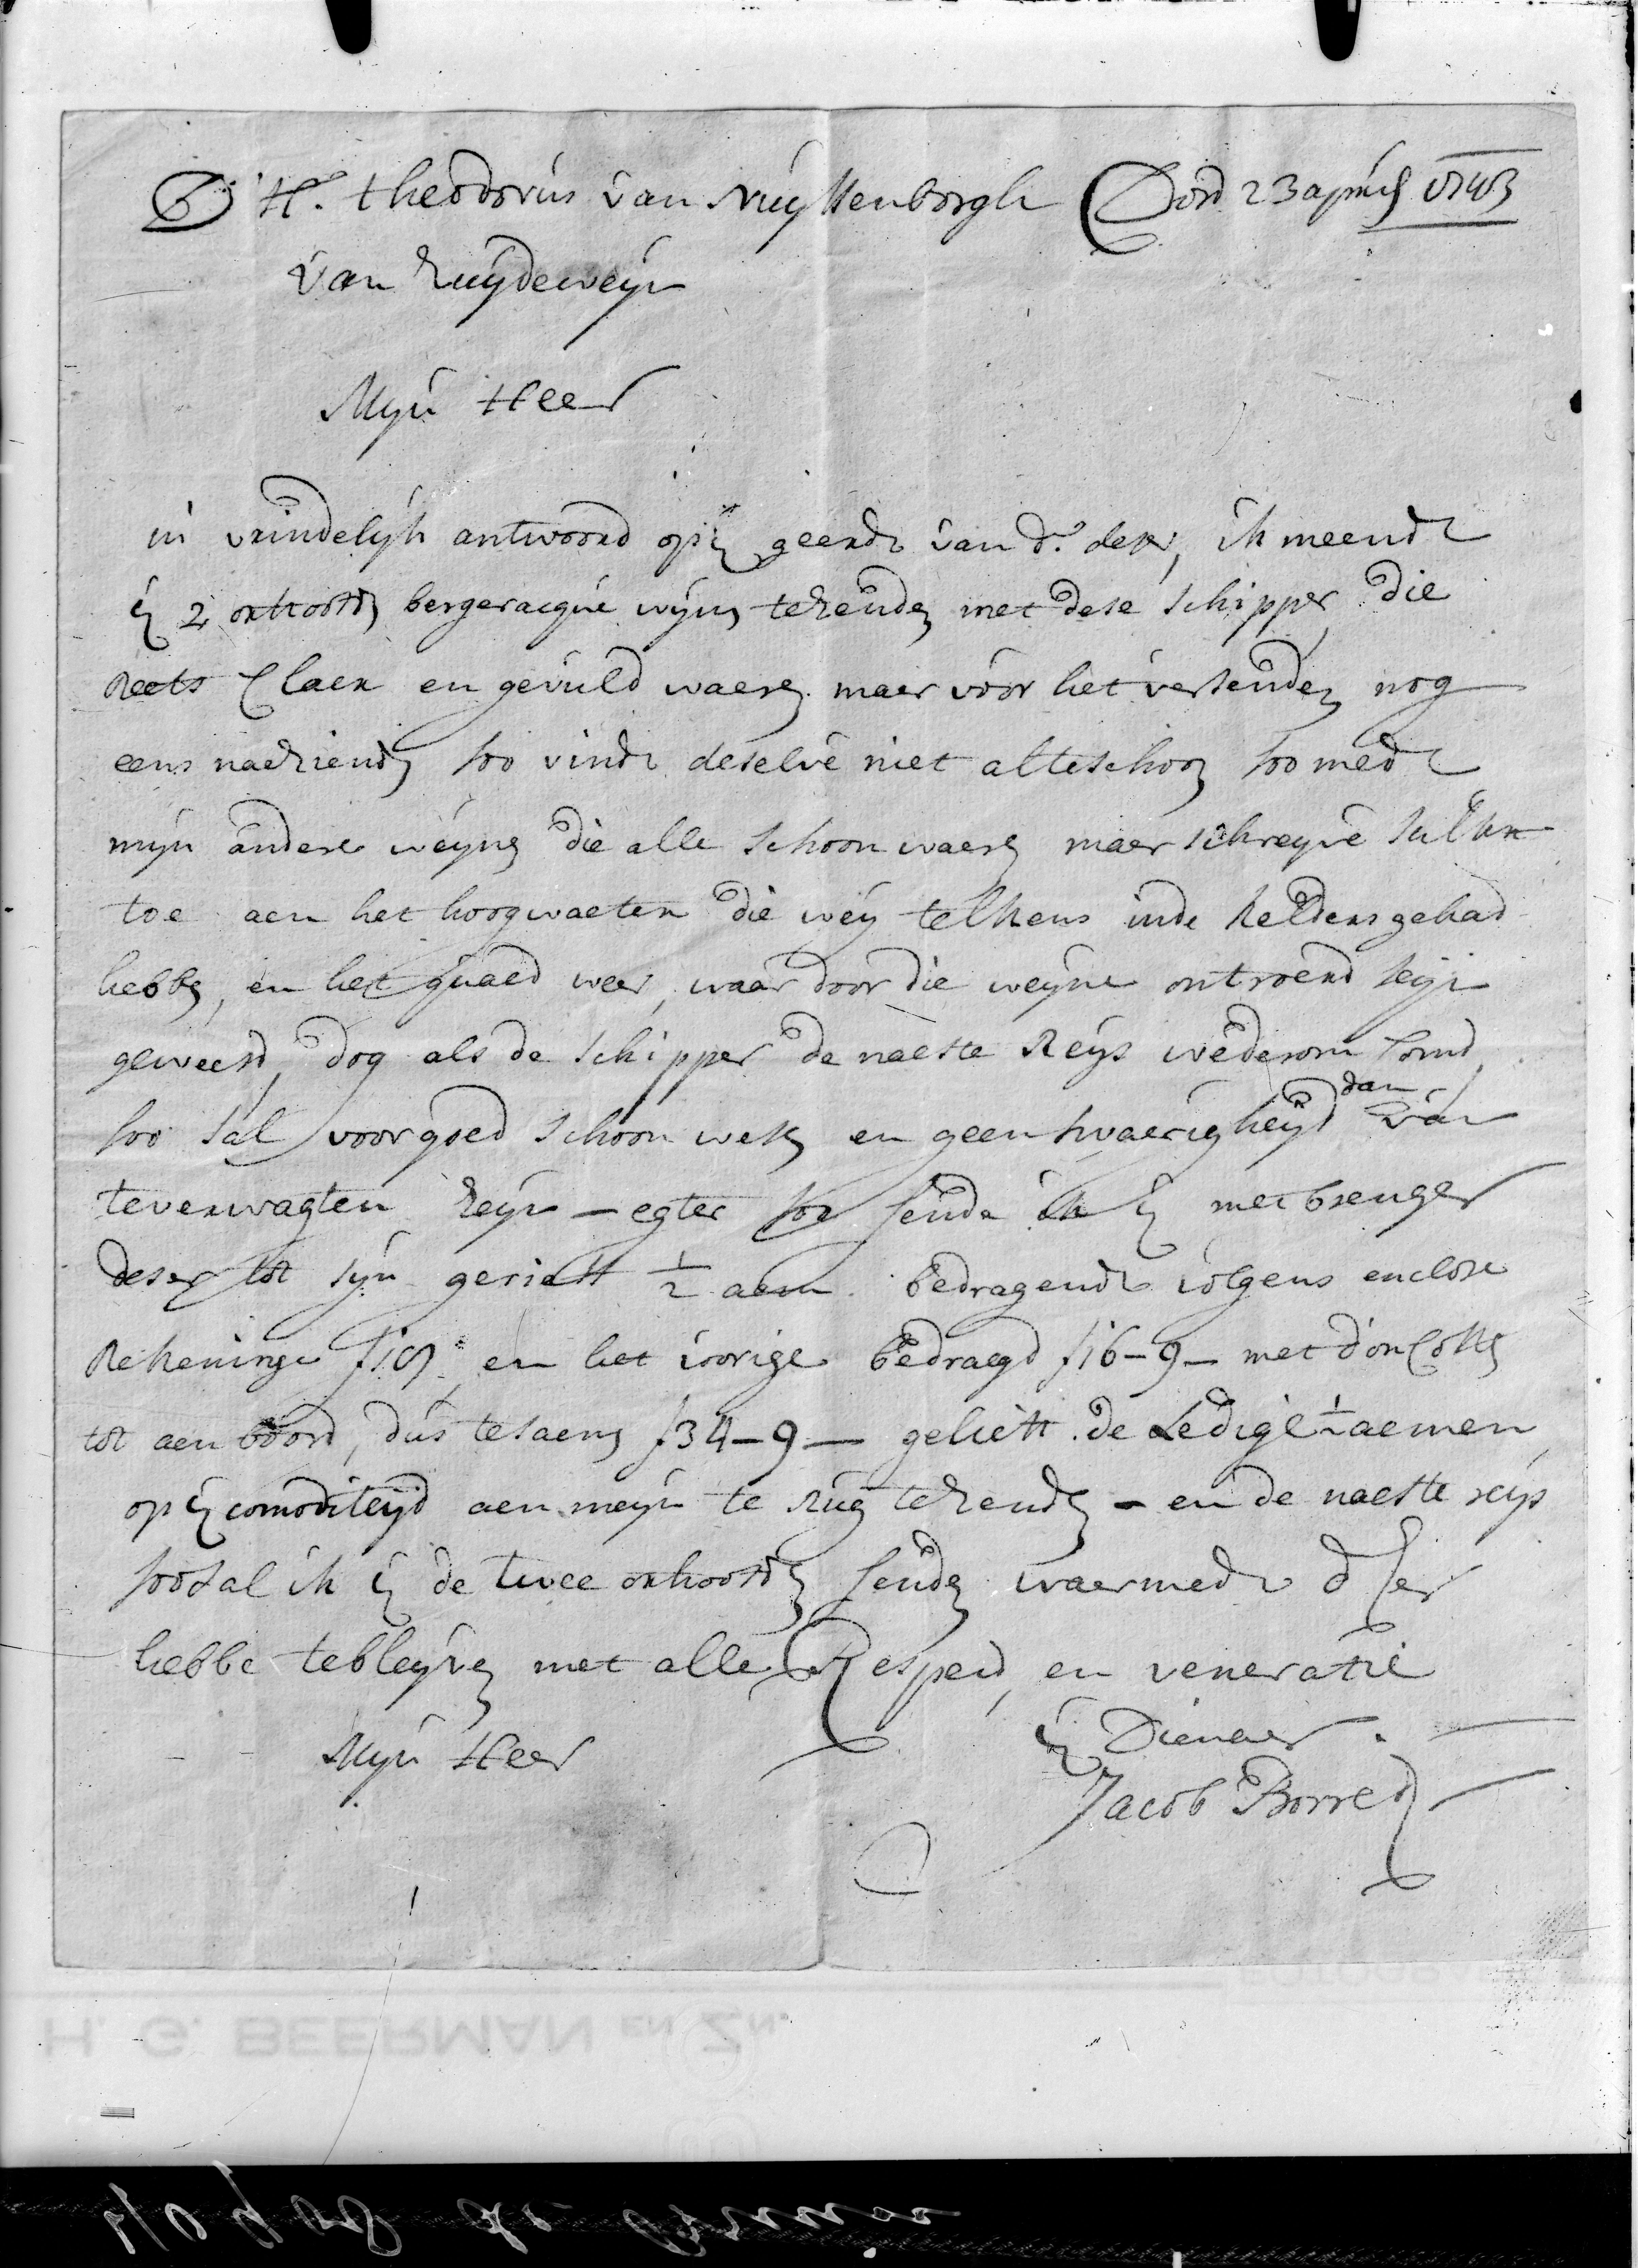 D H.r Theodorus van Ruyttenborgh Dord 23 aprijl 1743
van Zuydeweyn
Myn Heer
in vrindelyk antwoord op U geerde van d.o deser, ik meende
U 2 oxhoofd bergeracque wijn te zenden met dese schipper, die
reets claer en gevuld waeren maer voor het versenden nog
eens naeziende soo vinde deselve niet alte schoon soo mede
myn andere weynen die alle schoon waeren maer schreyve sulkx
toe aen het hoogwaeter die wey telkens inde kelders gehad
hebben, en het quaed weer, waar door die weyne ontroerd seyn
geweest, dog als de schipper de naeste Reys wederom komd
soo sal voor goed schoon wesen en geen swaerigheyd dan van
te verwagten zeyn – egter soo sende ik U met brenger
deser tot syn geriett ½ aem bedragende volgens enclose
Rekeninge f 18 en het vorige bedraegd f 16-9- met d'oncosten
tot aen boord, dus tesaem f 34-9 — geliett de Ledige ½ aemen
op U comoditeyd aen meyn te rug te zenden – en de naeste reys
soo sal ik U de twee oxhoofden senden waermede d'Eer
hebbe te bleyven met alle Respect en veneratie
Myn Heer
U Dienaer
Jacob Borret
H. G. BEERMAN EN ZN.